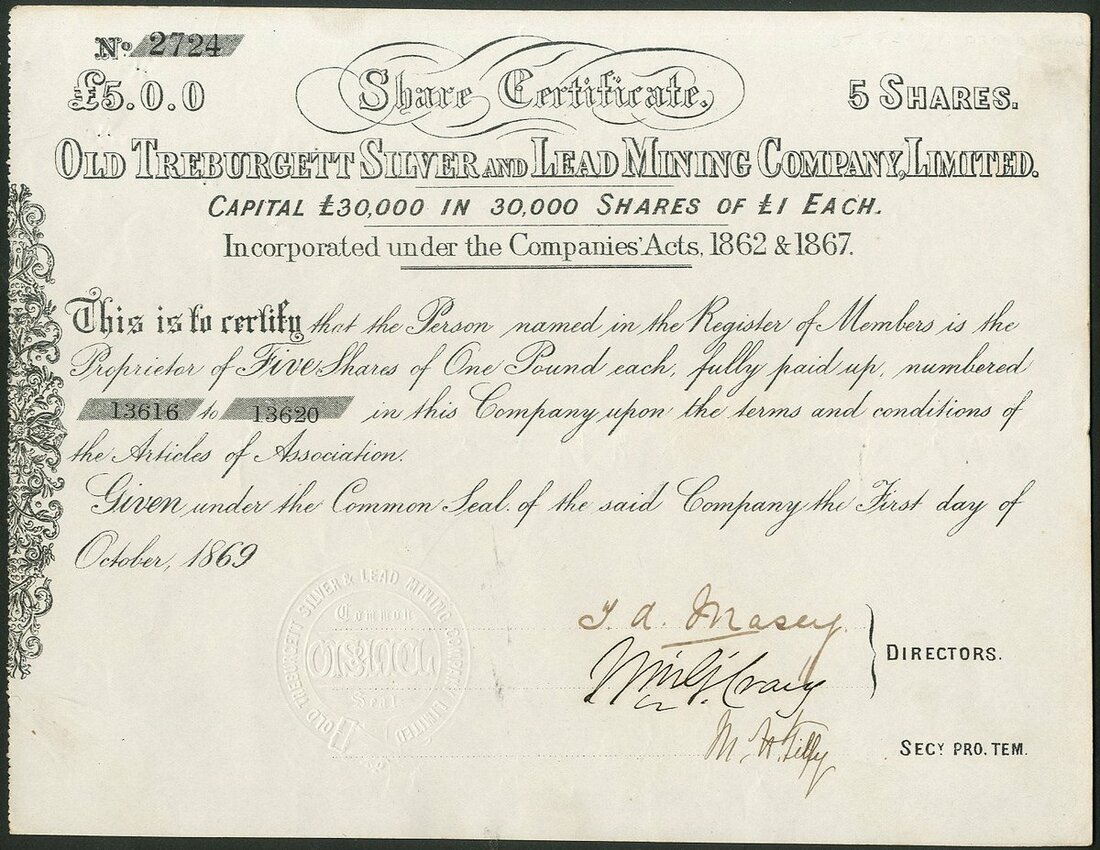 No 2724
£5.0.0 Share Certificate. 5 SHARES.
OLD TREBURGETT SILVER AND LEAD MINING COMPANY, LIMITED.
CAPITAL £30,000 IN 30,000 SHARES OF £1 EACH.
Incorporated under the Companies' Acts, 1862 & 1867.
This is to certify that the Person named in the Register of Members is the
Proprietor of Five Shares of One Pound each, fully paid up, numbered
13616 to 13620 in this Company upon the terms and conditions of
the Articles of Association.
Given under the Common Seal of the said Company the First day of
October, 1869
OLD TREBURGETT SILVER & LEAD MINING COMPANY LIMITED
Common
Seal
Masey
Craig
DIRECTORS.
SECY PRO. TEM.